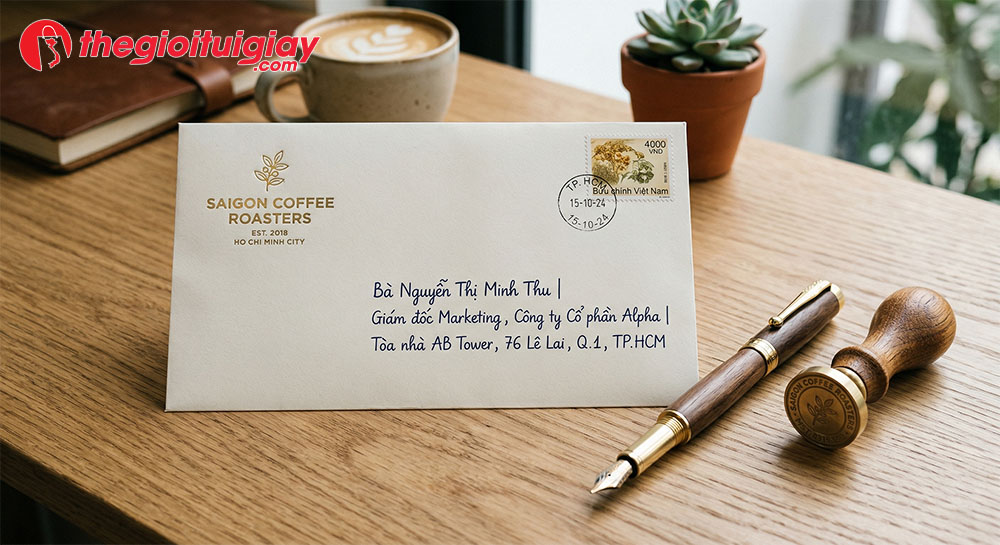 thegioituigiay
.com
SAIGON COFFEE
ROASTERS
EST. 2018
HO CHI MINH CITY
4000
VND
Bưu chính Việt Nam
TP. HCM
15-10-24
15-10-24
Bà Nguyễn Thị Minh Thu |
Giám đốc Marketing, Công ty Cổ phần Alpha |
Tòa nhà AB Tower, 76 Lê Lai, Q.1, TP.HCM
SAIGON COFFEE ROASTERS